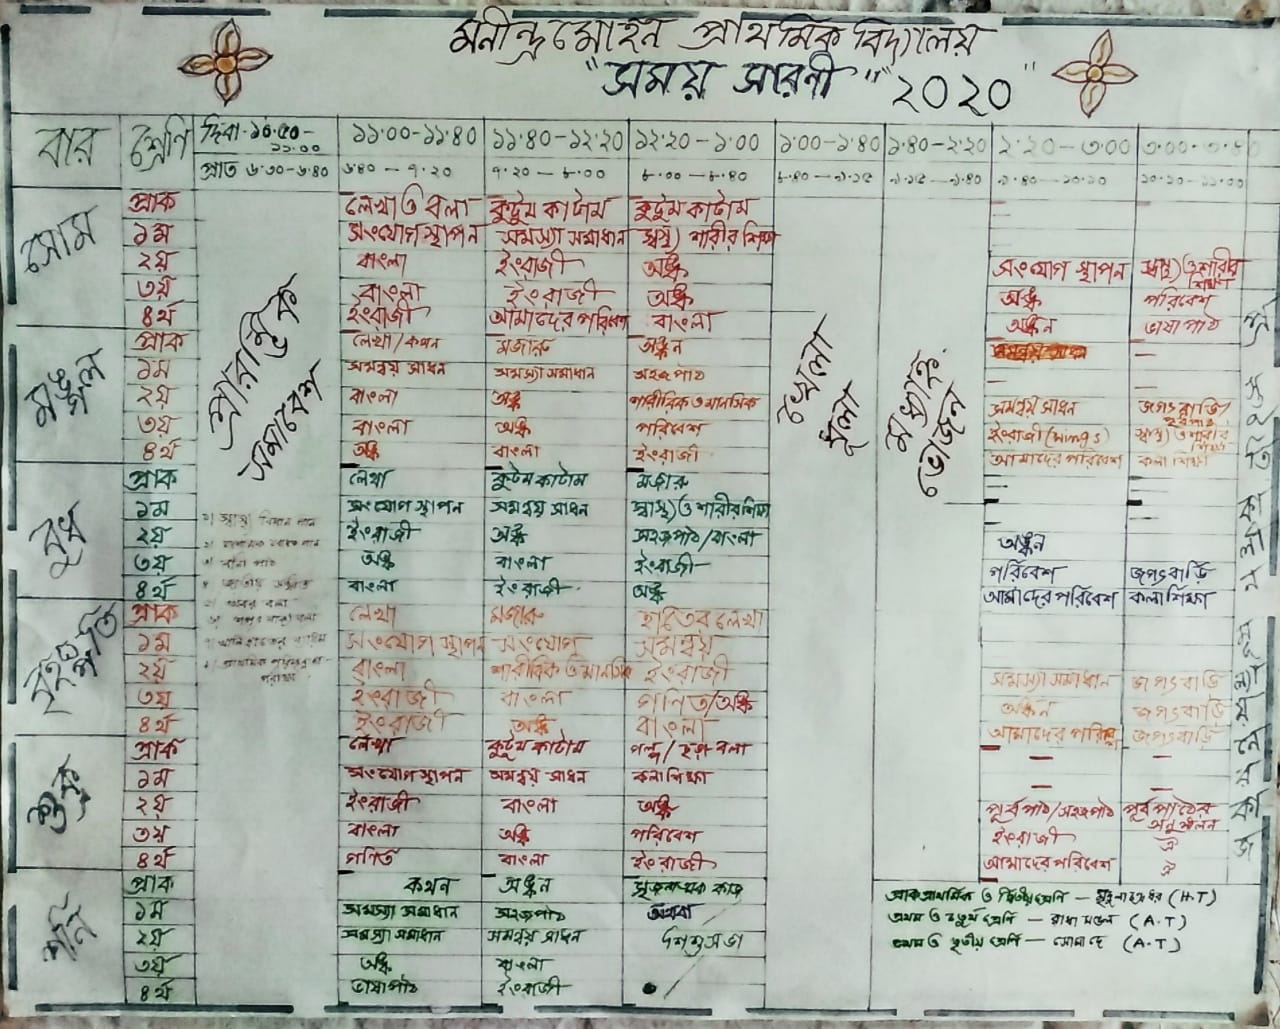 মনীন্দ্র মোহন প্রাথমিক বিদ্যালয়
"সময় সারনী" "২০২০"
বার শ্রেণি দিবা-১০:৫০-১১:০০ ১১:০০-১১:৪০ ১১:৪০-১২:২০ ১২:২০-১:০০ ১:০০-১:৪০ ১:৪০-২:২০ ২:২০-৩:০০ ৩:০০-৩:৪০
প্রাত ৬:৩০-৬:৪০ ৬:৪০-৭:২০ ৭:২০-৮:০০ ৮:০০-৮:৪০ ৮:৪০-৯:১৫ ৯:১৫-৯:৪০ ৯:৪০-১০:২০ ১০:২০-১১:০০
প্রারম্ভিক সমাবেশ
খেলা ধূলা
মধ্যাহ্ন ভোজন
সোম
প্রাক লেখা ও বলা কুটুম কাটাম কুটুম কাটাম
১ম সংযোগ স্থাপন সমস্যা সমাধান স্বাস্থ্য শারীর শিক্ষা
২য় বাংলা ইংরাজী অঙ্ক সংযোগ স্থাপন স্বাস্থ্য ও শারীর শিক্ষা
৩য় বাংলা ইংরাজী অঙ্ক অঙ্ক পরিবেশ
৪র্থ ইংরাজী আমাদের পরিবেশ বাংলা অঙ্কন ভাষা পাঠ
মঙ্গল
প্রাক লেখা/কথন মজারু অঙ্কন
১ম সমন্বয় সাধন সমস্যা সমাধান সহজ পাঠ
২য় বাংলা অঙ্ক শারীরিক ও মানসিক সমন্বয় সাধন জগৎ বাড়ি/
৩য় বাংলা অঙ্ক পরিবেশ ইংরাজী (Wings) স্বাস্থ্য ও শারীর শিক্ষা
৪র্থ অঙ্ক বাংলা ইংরাজী আমাদের পরিবেশ কলা শিক্ষা
বুধ
প্রাক লেখা কুটুম কাটাম মজারু
১ম সংযোগ স্থাপন সমন্বয় সাধন স্বাস্থ্য ও শারীর শিক্ষা
২য় ইংরাজী অঙ্ক সহজপাঠ/বাংলা অঙ্কন
৩য় অঙ্ক বাংলা ইংরাজী পরিবেশ জগৎবাড়ি
৪র্থ বাংলা ইংরাজী অঙ্ক আমাদের পরিবেশ কলা শিক্ষা
বৃহস্পতি
প্রাক লেখা মজারু হাতের লেখা
১ম সংযোগ স্থাপন সংযোগ সমন্বয়
২য় বাংলা শারীরিক ও মানসিক ইংরাজী সমস্যা সমাধান জগৎবাড়ি
৩য় ইংরাজী বাংলা গণিত/অঙ্ক অঙ্কন জগৎবাড়ি
৪র্থ ইংরাজী অঙ্ক বাংলা আমাদের পরিবেশ জগৎবাড়ি
শুক্র
প্রাক লেখা কুটুম কাটাম গল্প/ছড়া বলা
১ম সংযোগ স্থাপন সমন্বয় সাধন কলা শিক্ষা
২য় ইংরাজী বাংলা অঙ্ক পূর্ব পাঠ/সহজপাঠ পূর্ব পাঠের অনুশীলন
৩য় বাংলা অঙ্ক পরিবেশ ইংরাজী ঐ
৪র্থ গণিত বাংলা ইংরাজী আমাদের পরিবেশ ঐ
শনি
প্রাক কথন অঙ্কন সৃজনাত্মক কাজ
১ম সমস্যা সমাধান সহজপাঠ অথবা
২য় সমস্যা সমাধান সমন্বয় সাধন শিশুসভা
৩য় অঙ্ক বাংলা
৪র্থ ভাষা পাঠ ইংরাজী
প্রাকপ্রাথমিক ও দ্বিতীয় শ্রেণি - (H.T)
প্রথম ও চতুর্থ শ্রেণি - রাধা মন্ডল (A.T)
প্রথম ও তৃতীয় শ্রেণি - সোমা দে (A.T)
প্রস্তুতিকালীন মূল্যায়নের কাজ